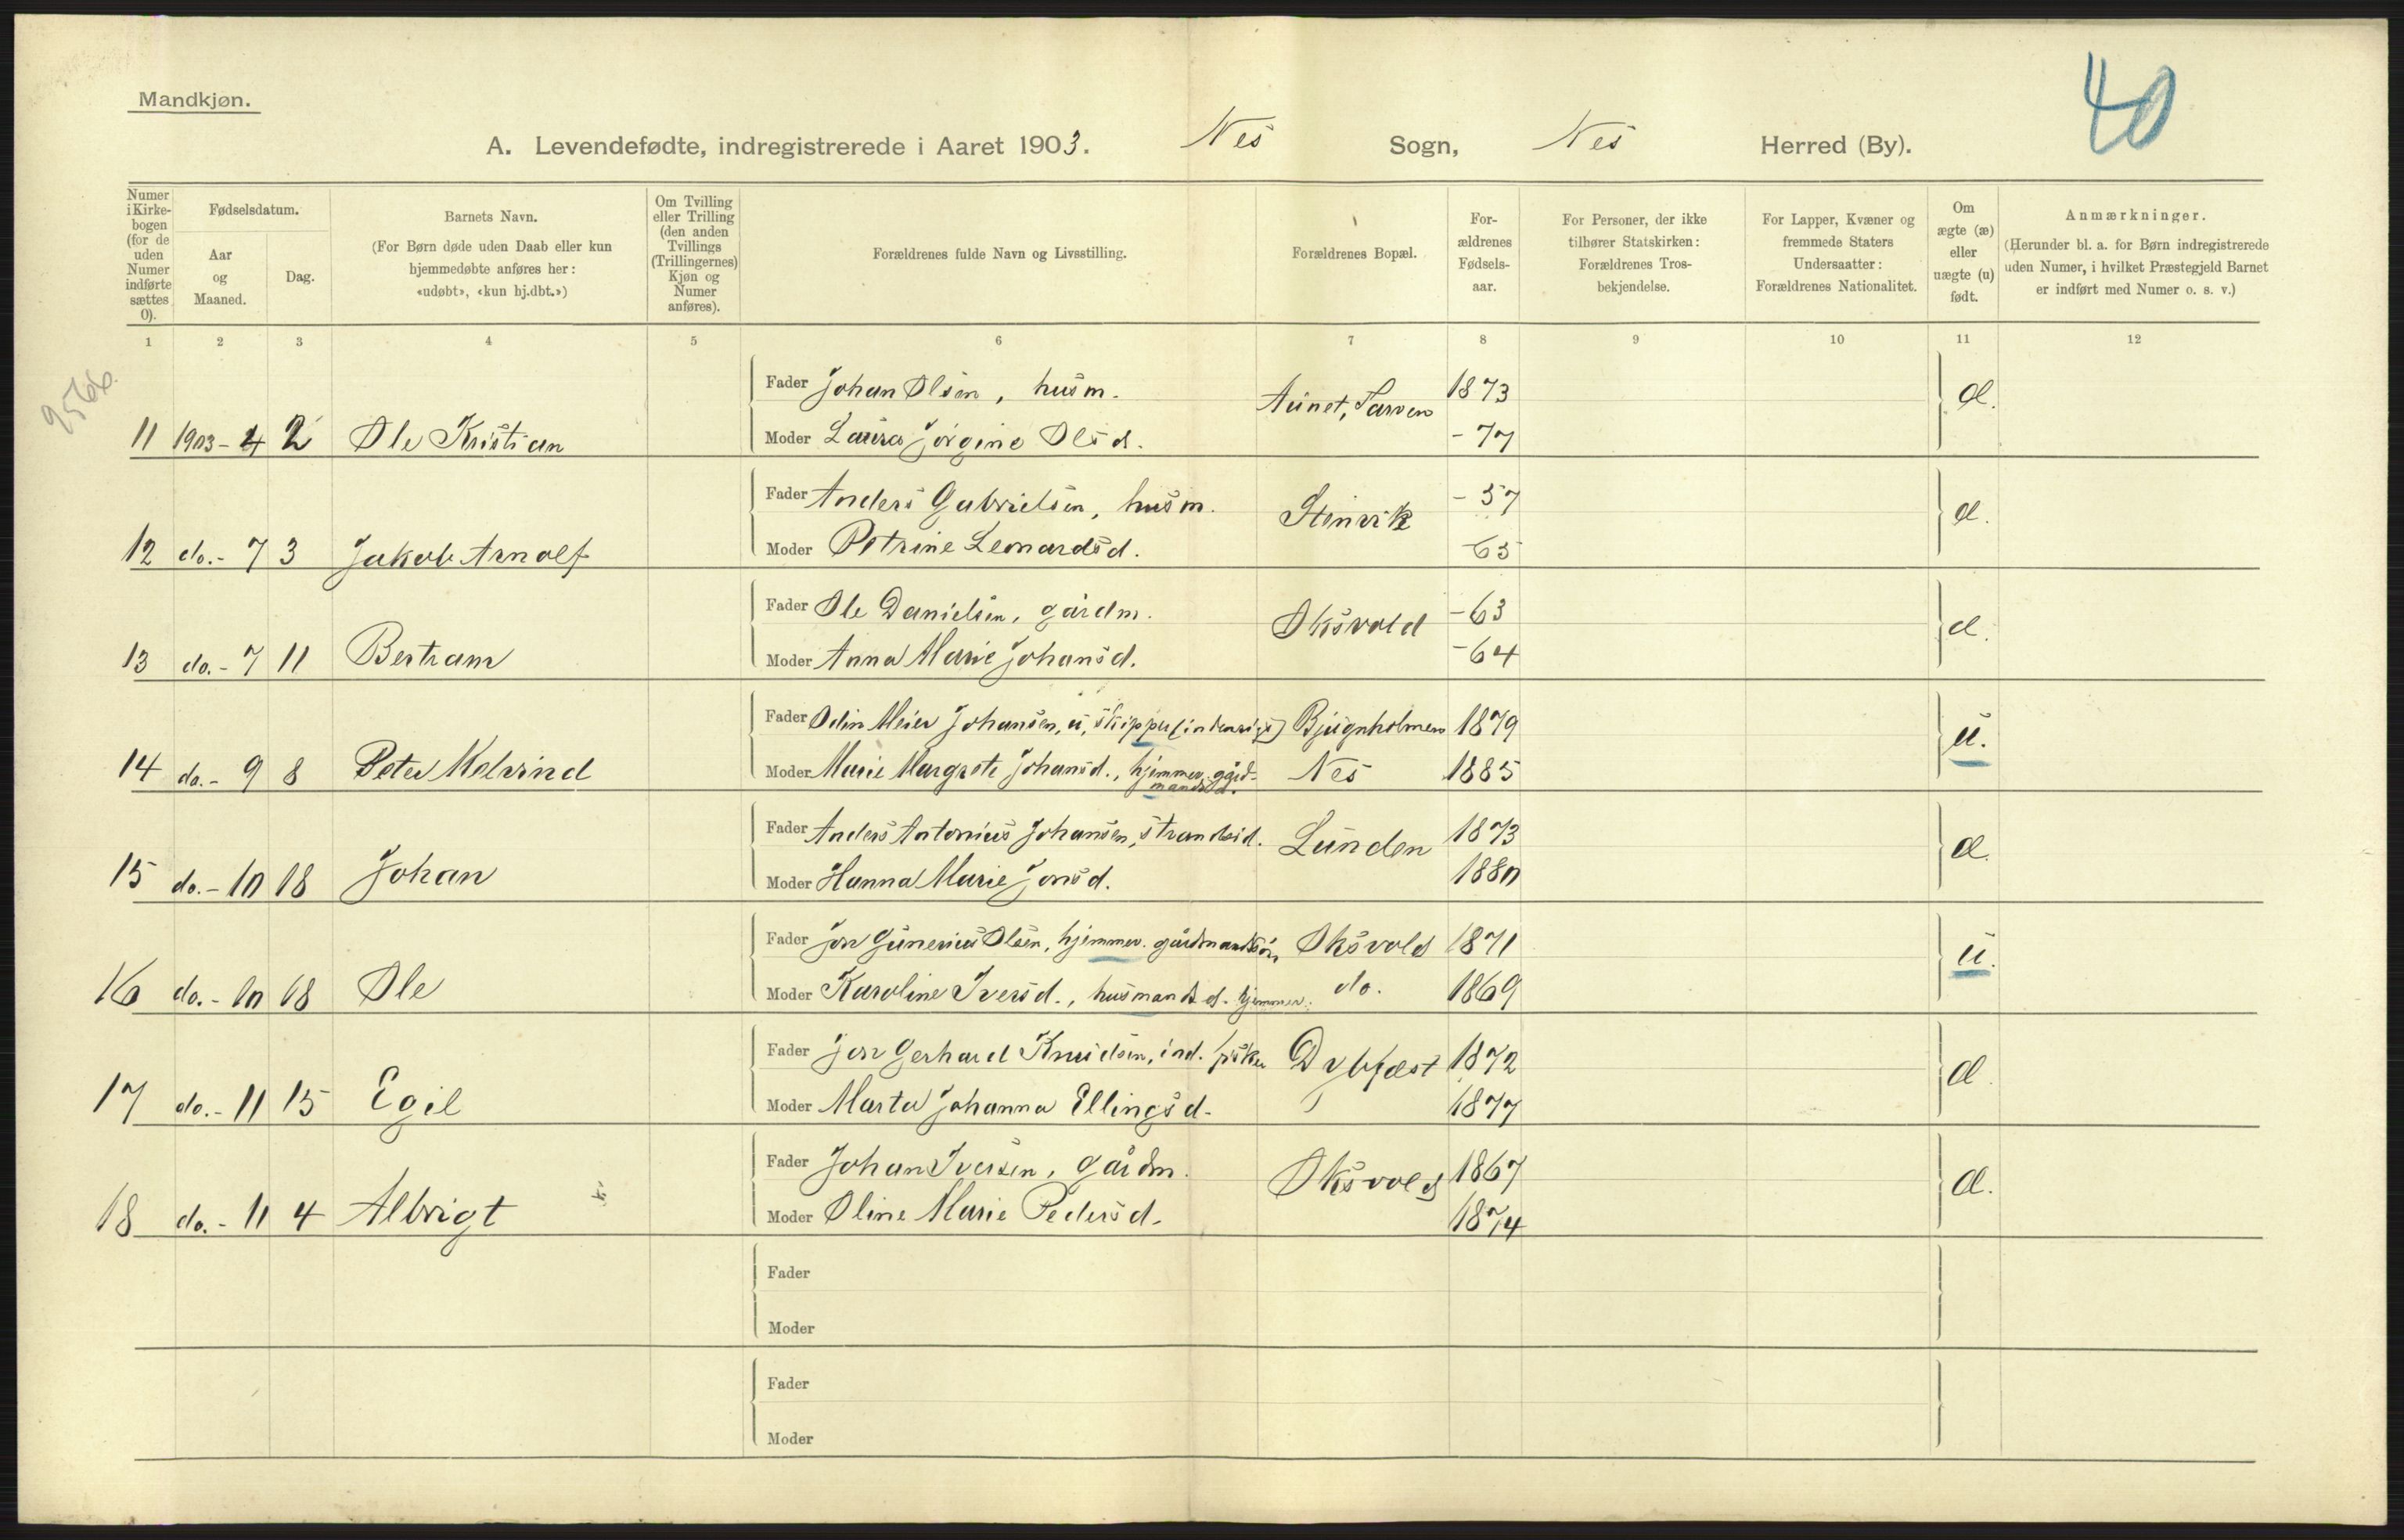 Mandkjøn.
40
A. Levendefødte, indregistrerede i Aaret 1903. Nes Sogn, Nes Herred (By).
Numer i Kirkebogen (for de uden Numer indførte sættes 0).
Fødselsdatum.
Aar og Maaned.
Dag.
Barnets Navn.
(For Børn døde uden Daab eller kun hjemmedøbte anføres her: «udøbt», «kun hj.dbt.»)
Om Tvilling eller Trilling (den anden Tvillings (Trillingernes) Kjøn og Numer anføres).
Forældrenes fulde Navn og Livsstilling.
Forældrenes Bopæl.
Forældrenes Fødselsaar.
For Personer, der ikke tilhører Statskirken: Forældrenes Trosbekjendelse.
For Lapper, Kvæner og fremmede Staters Undersaatter: Forældrenes Nationalitet.
Om ægte (æ) eller uægte (u) født.
Anmærkninger.
(Herunder bl. a. for Børn indregistrerede uden Numer, i hvilket Præstegjeld Barnet er indført med Numer o. s. v.)
1 2 3 4 5 6 7 8 9 10 11 12
Fader Johan Olsen, husm. Aunet, Tarven 1873 æ.
11 1903-4 2 Ole Kristian Moder Laura Jørgine Olsd. -77
Fader Anders Gabrielsen, husm. Stenvik -57 æ.
12 do.-7 3 Jakob Arnolf Moder Petrine Leonardsd. -65
Fader Ole Danielsen, gårdm. Oksvold -63 æ.
13 do.-7 11 Bertram Moder Anna Marie Johansd. -64
Fader Odin Meier Johansen, u, skipper (indenrigs) Bjugnholmen 1879 u.
14 do.-9 8 Peter Melvind Moder Marie Margrete Johansd., hjemmev. gårdmandsd. Nes 1885
Fader Anders Antonius Johansen, strandsid. Lunden 1873 æ.
15 do.-10 18 Johan Moder Hanna Marie Jonsd. 1880
Fader Jon Gunerius Olsen, hjemmev. gårdmandssøn Oksvold 1871 u.
16 do.-10 18 Ole Moder Karoline Iversd., husmandsd. hjemmev. do. 1869
Fader Jon Gerhard Knudsen, ind. fisker Dybfest 1872 æ
17 do.-11 15 Egil Moder Marta Johanna Ellingsd. 1877
Fader Johan Iversen, gårdm. Oksvold 1867 æ.
18 do.-11 4 Albrigt Moder Oline Marie Pedersd. 1874
Fader
Moder
Fader
Moder